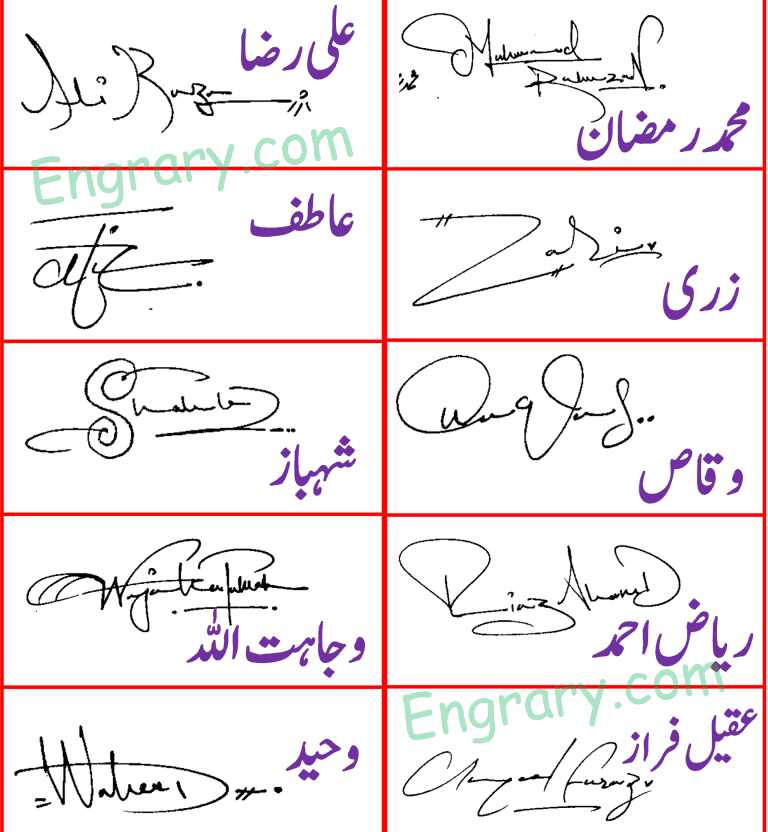 Ali Raza
علی رضا
Muhammad
Ramzan
محمد رمضان
Engrary.com
Atif
عاطف
زری
شہباز
Waqas
وقاص
وجاہت اللہ
Riaz Ahmad
ریاض احمد
Engrary.com
Waheed
وحید
عقیل فراز